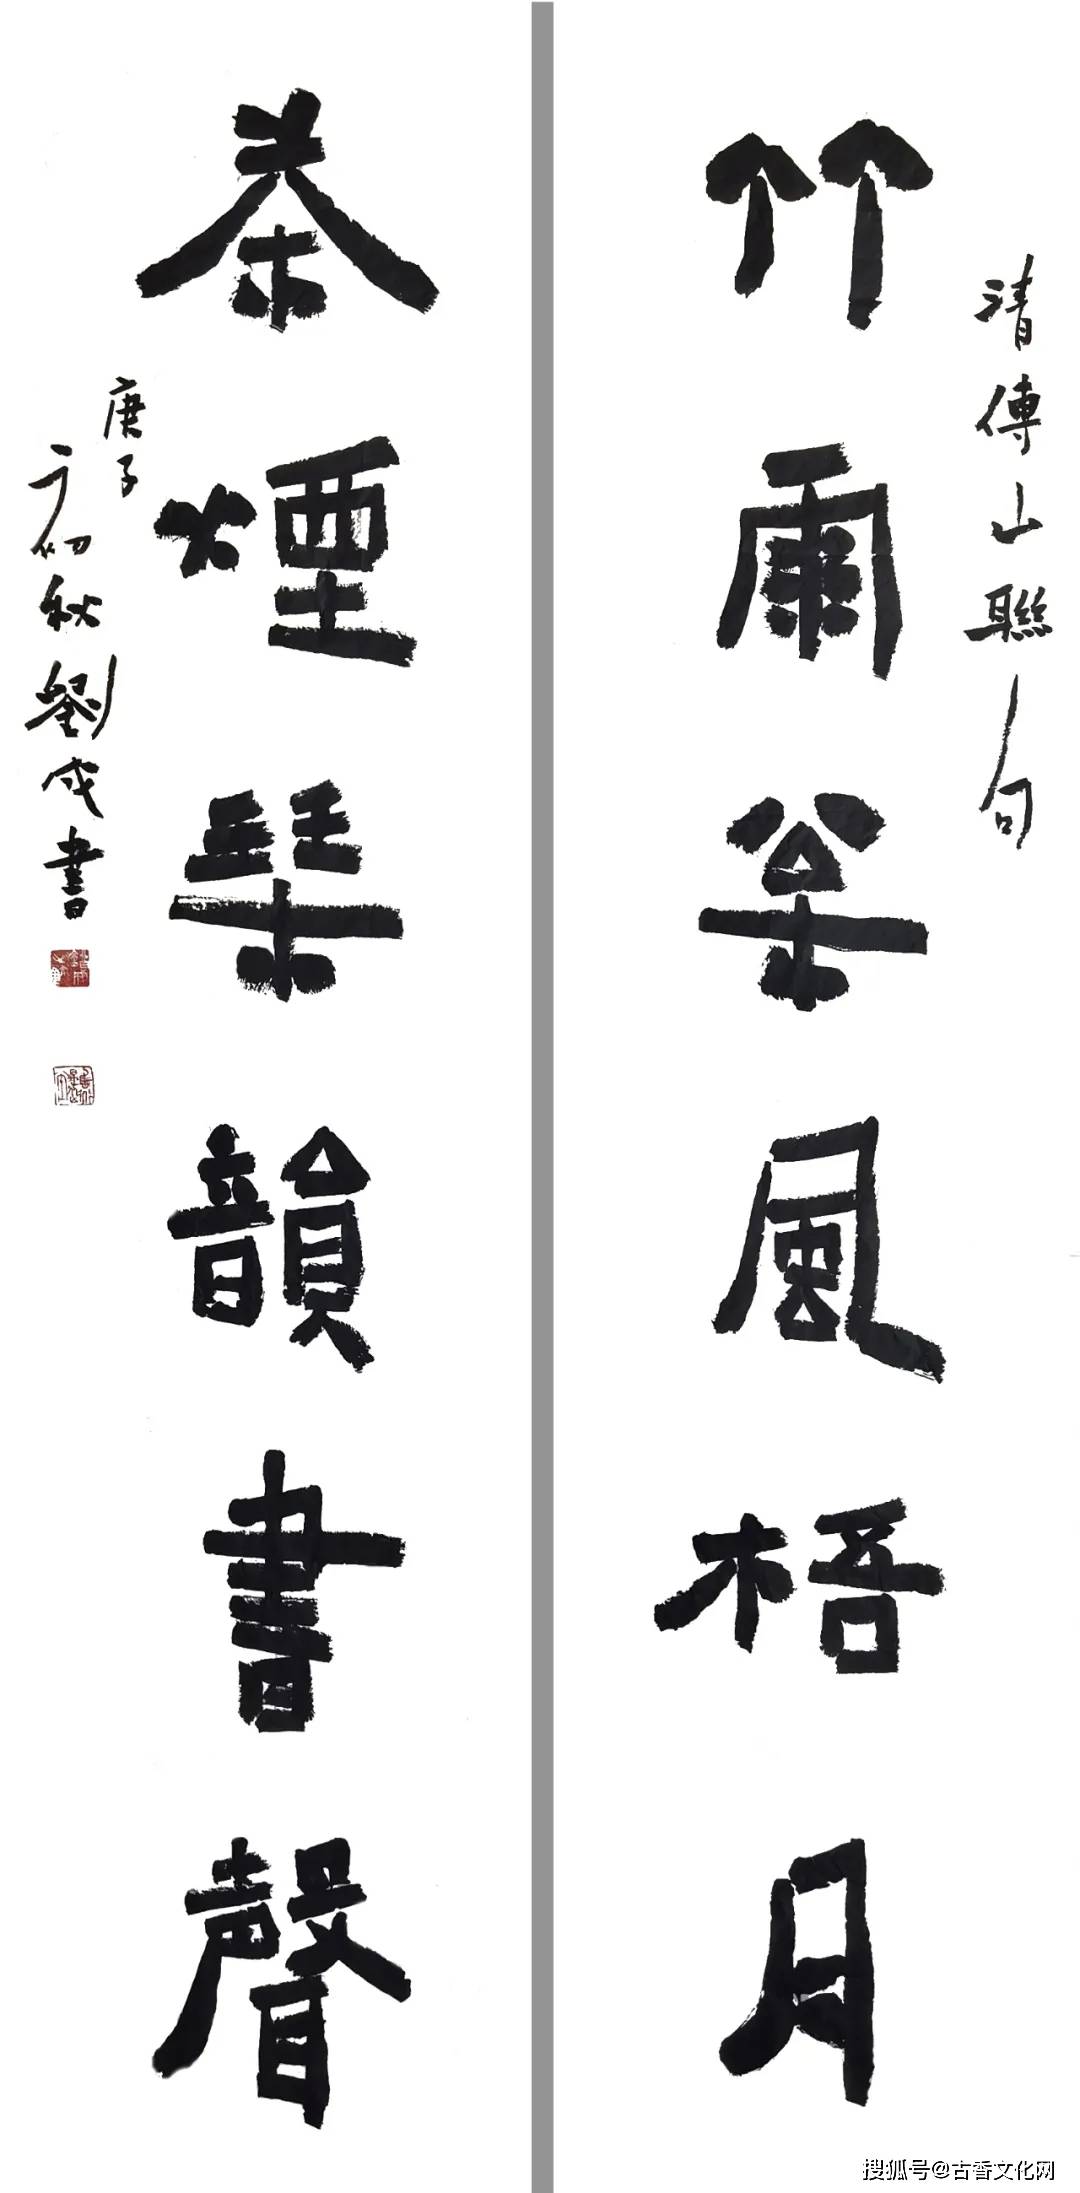 清傅山聯句
竹雨枀風梧月
茶煙琹韻書聲
庚子
初秋劉成書
搜狐号@古香文化网